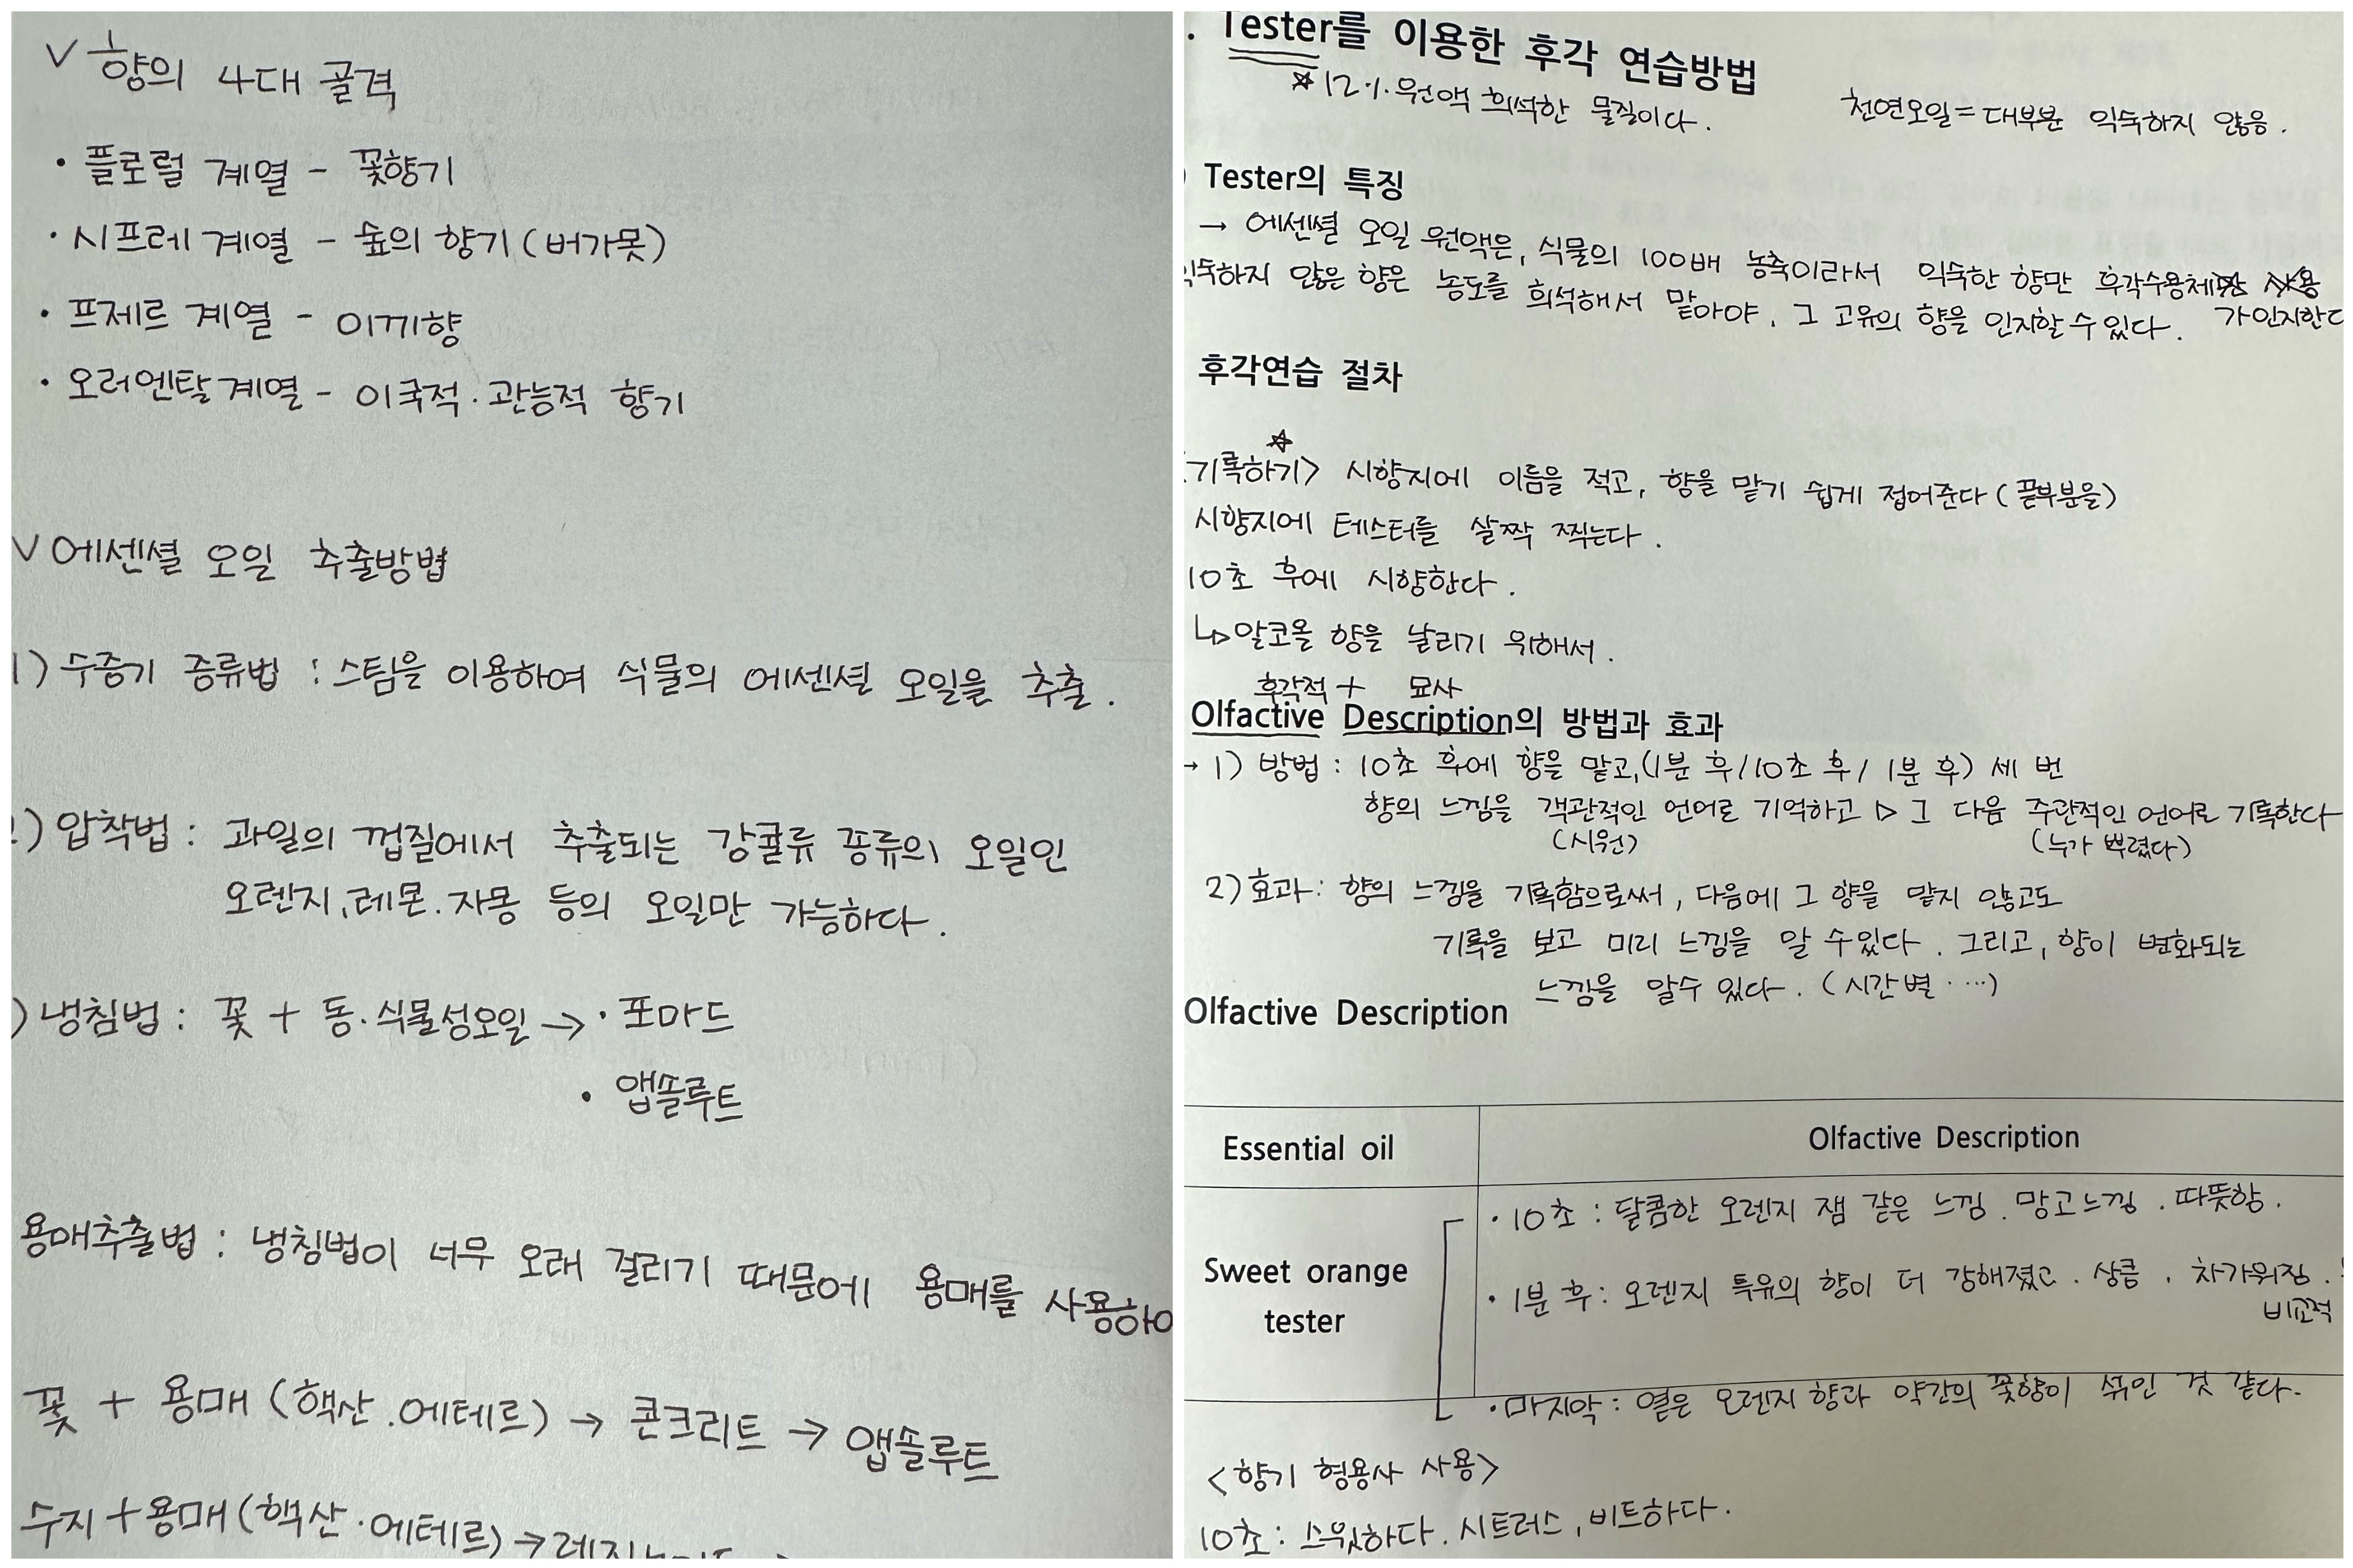 ∨ 향의 4대 골격
· 플로럴 계열 - 꽃향기
· 시프레 계열 - 숲의 향기 (버가못)
· 프제르 계열 - 이끼향
· 오러엔탈 계열 - 이국적·관능적 향기
∨ 에센셜 오일 추출방법
1) 수증기 증류법 : 스팀을 이용하여 식물의 에센셜 오일을 추출.
) 압착법 : 과일의 껍질에서 추출되는 감귤류 종류의 오일인
오렌지, 레몬. 자몽 등의 오일만 가능하다.
) 냉침법 : 꽃 + 동·식물성오일 → · 포마드
· 앱솔루트
용매추출법 : 냉침법이 너무 오래 걸리기 때문에 용매를 사용하여
꽃 + 용매 (핵산.에테르) → 콘크리트 → 앱솔루트
수지 + 용매 (핵산·에테르) →
. Tester를 이용한 후각 연습방법
☆ 12% 원액 희석한 물질이다.
천연오일 = 대부분 익숙하지 않음.
) Tester의 특징
→ 에센셜 오일 원액은, 식물의 100배 농축이라서 익숙한 향만 후각수용체
가 인지한다
익숙하지 않은 향은 농도를 희석해서 맡아야, 그 고유의 향을 인지할 수 있다.
후각연습 절차
☆
<기록하기> 시향지에 이름을 적고, 향을 맡기 쉽게 접어준다 (끝부분을)
시향지에 테스터를 살짝 찍는다.
10초 후에 시향한다.
↳ 알코올 향을 날리기 위해서.
후각적 + 묘사
Olfactive Description의 방법과 효과
→ 1) 방법 : 10초 후에 향을 맡고, (1분 후/10초 후/ 1분 후) 세 번
향의 느낌을 객관적인 언어로 기억하고 ▷ 그 다음 주관적인 언어로 기록한다
(시원)
(누가 뿌렸다)
2) 효과 : 향의 느낌을 기록함으로써, 다음에 그 향을 맡지 않고도
기록을 보고 미리 느낌을 알 수 있다. 그리고, 향이 변화되는
느낌을 알수 있다. (시간별 ····)
Olfactive Description
Essential oil
Olfactive Description
Sweet orange
tester
· 10초 : 달콤한 오렌지 잼 같은 느낌. 망고느낌. 따뜻함.
· 1분 후 : 오렌지 특유의 향이 더 강해졌고. 상큼. 차가워짐.
비교적
· 마지막 : 옅은 오렌지 향과 약간의 꽃향이 섞인 것 같다.
<향기 형용사 사용>
10초 : 스윗하다. 시트러스, 비트하다.